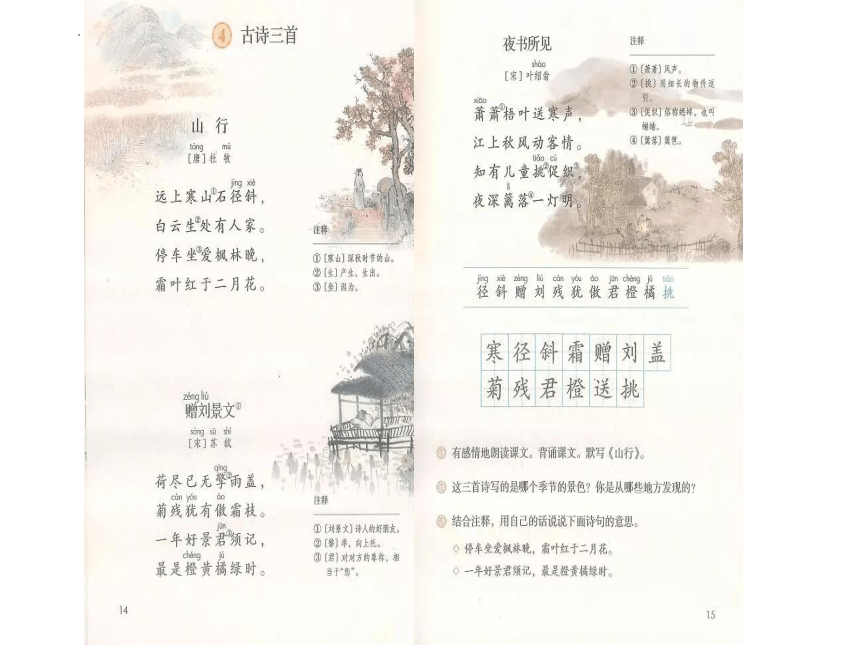 4 古诗三首
山 行
tóng mù
[唐] 杜 牧
jìng xié
远上寒山①石径斜，
白云生②处有人家。
停车坐③爱枫林晚，
霜叶红于二月花。
注释
①〔寒山〕深秋时节的山。
②〔生〕产生，生出。
③〔坐〕因为。
zèng liú
赠刘景文①
sòng sū shì
[宋] 苏 轼
qíng
荷尽已无擎②雨盖，
cán yóu ào
菊残犹有傲霜枝。
jūn
一年好景君③须记，
chéng jú
最是橙黄橘绿时。
注释
①〔刘景文〕诗人的好朋友。
②〔擎〕举，向上托。
③〔君〕对对方的尊称，相
当于“您”。
14
夜书所见
shào
[宋] 叶绍翁
xiāo
萧萧①梧叶送寒声，
江上秋风动客情。
tiǎo cù
知有儿童挑②促织③，
lí
夜深篱落④一灯明。
注释
①〔萧萧〕风声。
②〔挑〕用细长的物件逗
引。
③〔促织〕俗称蟋蟀，也叫
蛐蛐。
④〔篱落〕篱笆。
jìng xié zèng liú cán yóu ào jūn chéng jú tiǎo
径 斜 赠 刘 残 犹 傲 君 橙 橘 挑
寒 径 斜 霜 赠 刘 盖
菊 残 君 橙 送 挑
有感情地朗读课文。背诵课文。默写《山行》。
这三首诗写的是哪个季节的景色？你是从哪些地方发现的？
结合注释，用自己的话说说下面诗句的意思。
◇ 停车坐爱枫林晚，霜叶红于二月花。
◇ 一年好景君须记，最是橙黄橘绿时。
15